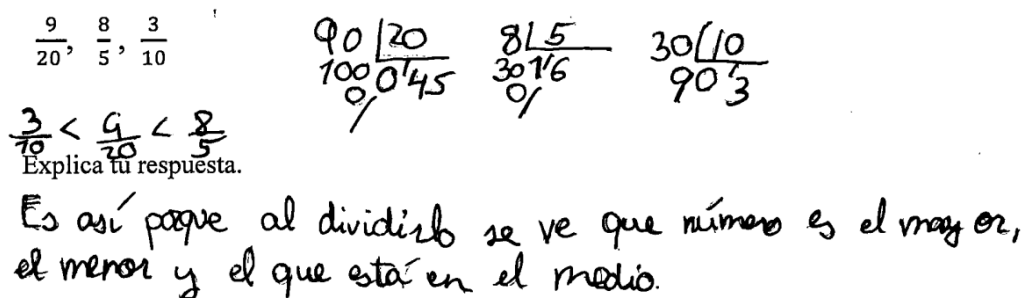 9/20, 8/5, 3/10
90 |20
100 0'45
0/
8 |5
30 1'6
0/
30 |10
90 0'3
3/10 < 9/20 < 8/5
Explica tu respuesta.
Es así poque al dividirlo se ve que número es el mayor,
el menor y el que está en el medio.